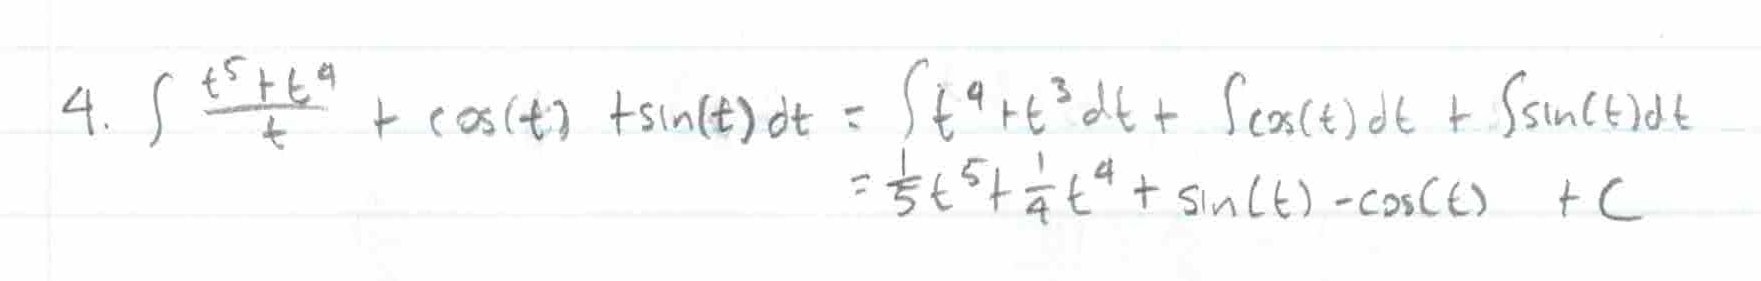 4. ∫ (t⁵+t⁴)/t + cos(t) + sin(t) dt = ∫t⁴+t³dt + ∫cos(t)dt + ∫sin(t)dt
= 1/5 t⁵ + 1/4 t⁴ + sin(t) - cos(t) + C